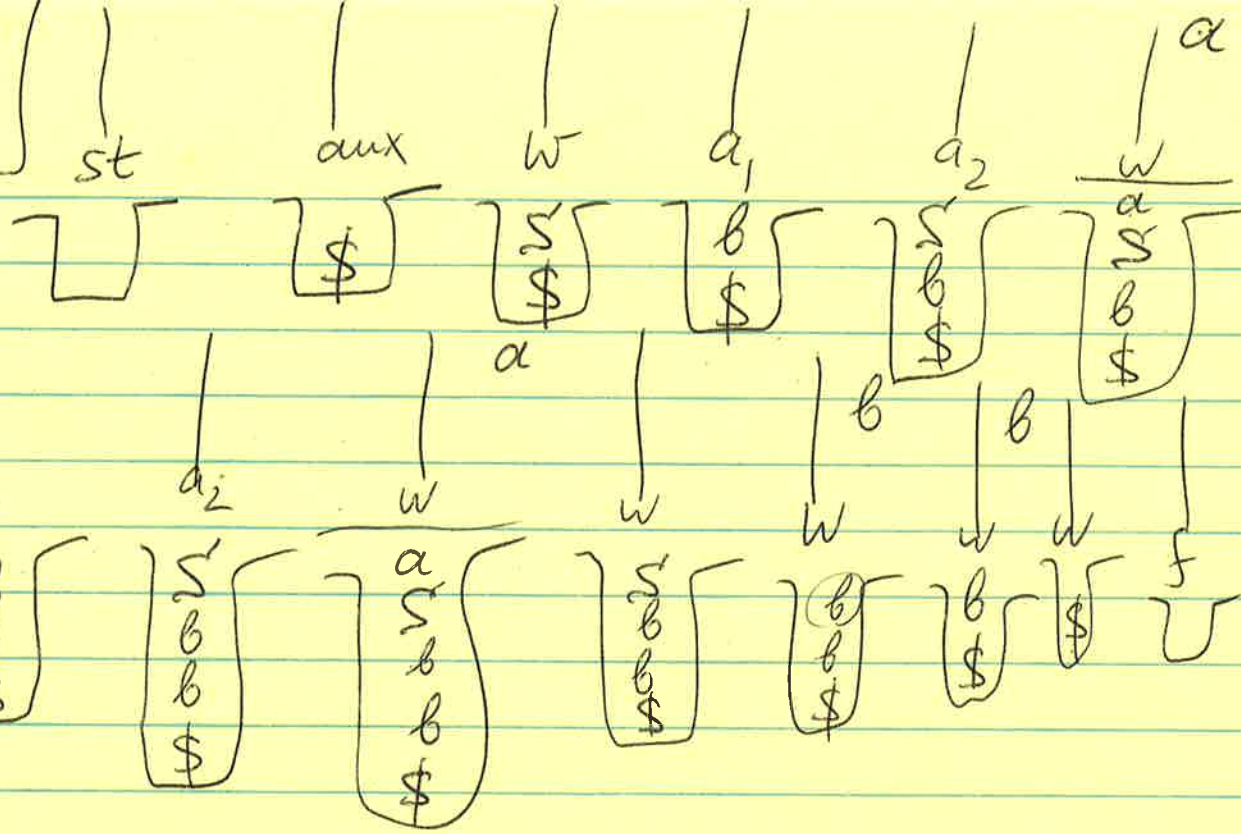 a
st aux w a₁ a₂ w
$ S b S a
$ $ b S
$ b
$
a
b b
a₂ w w w w w f
S a S b b $
b S b b $
b b b $
$ b $
$